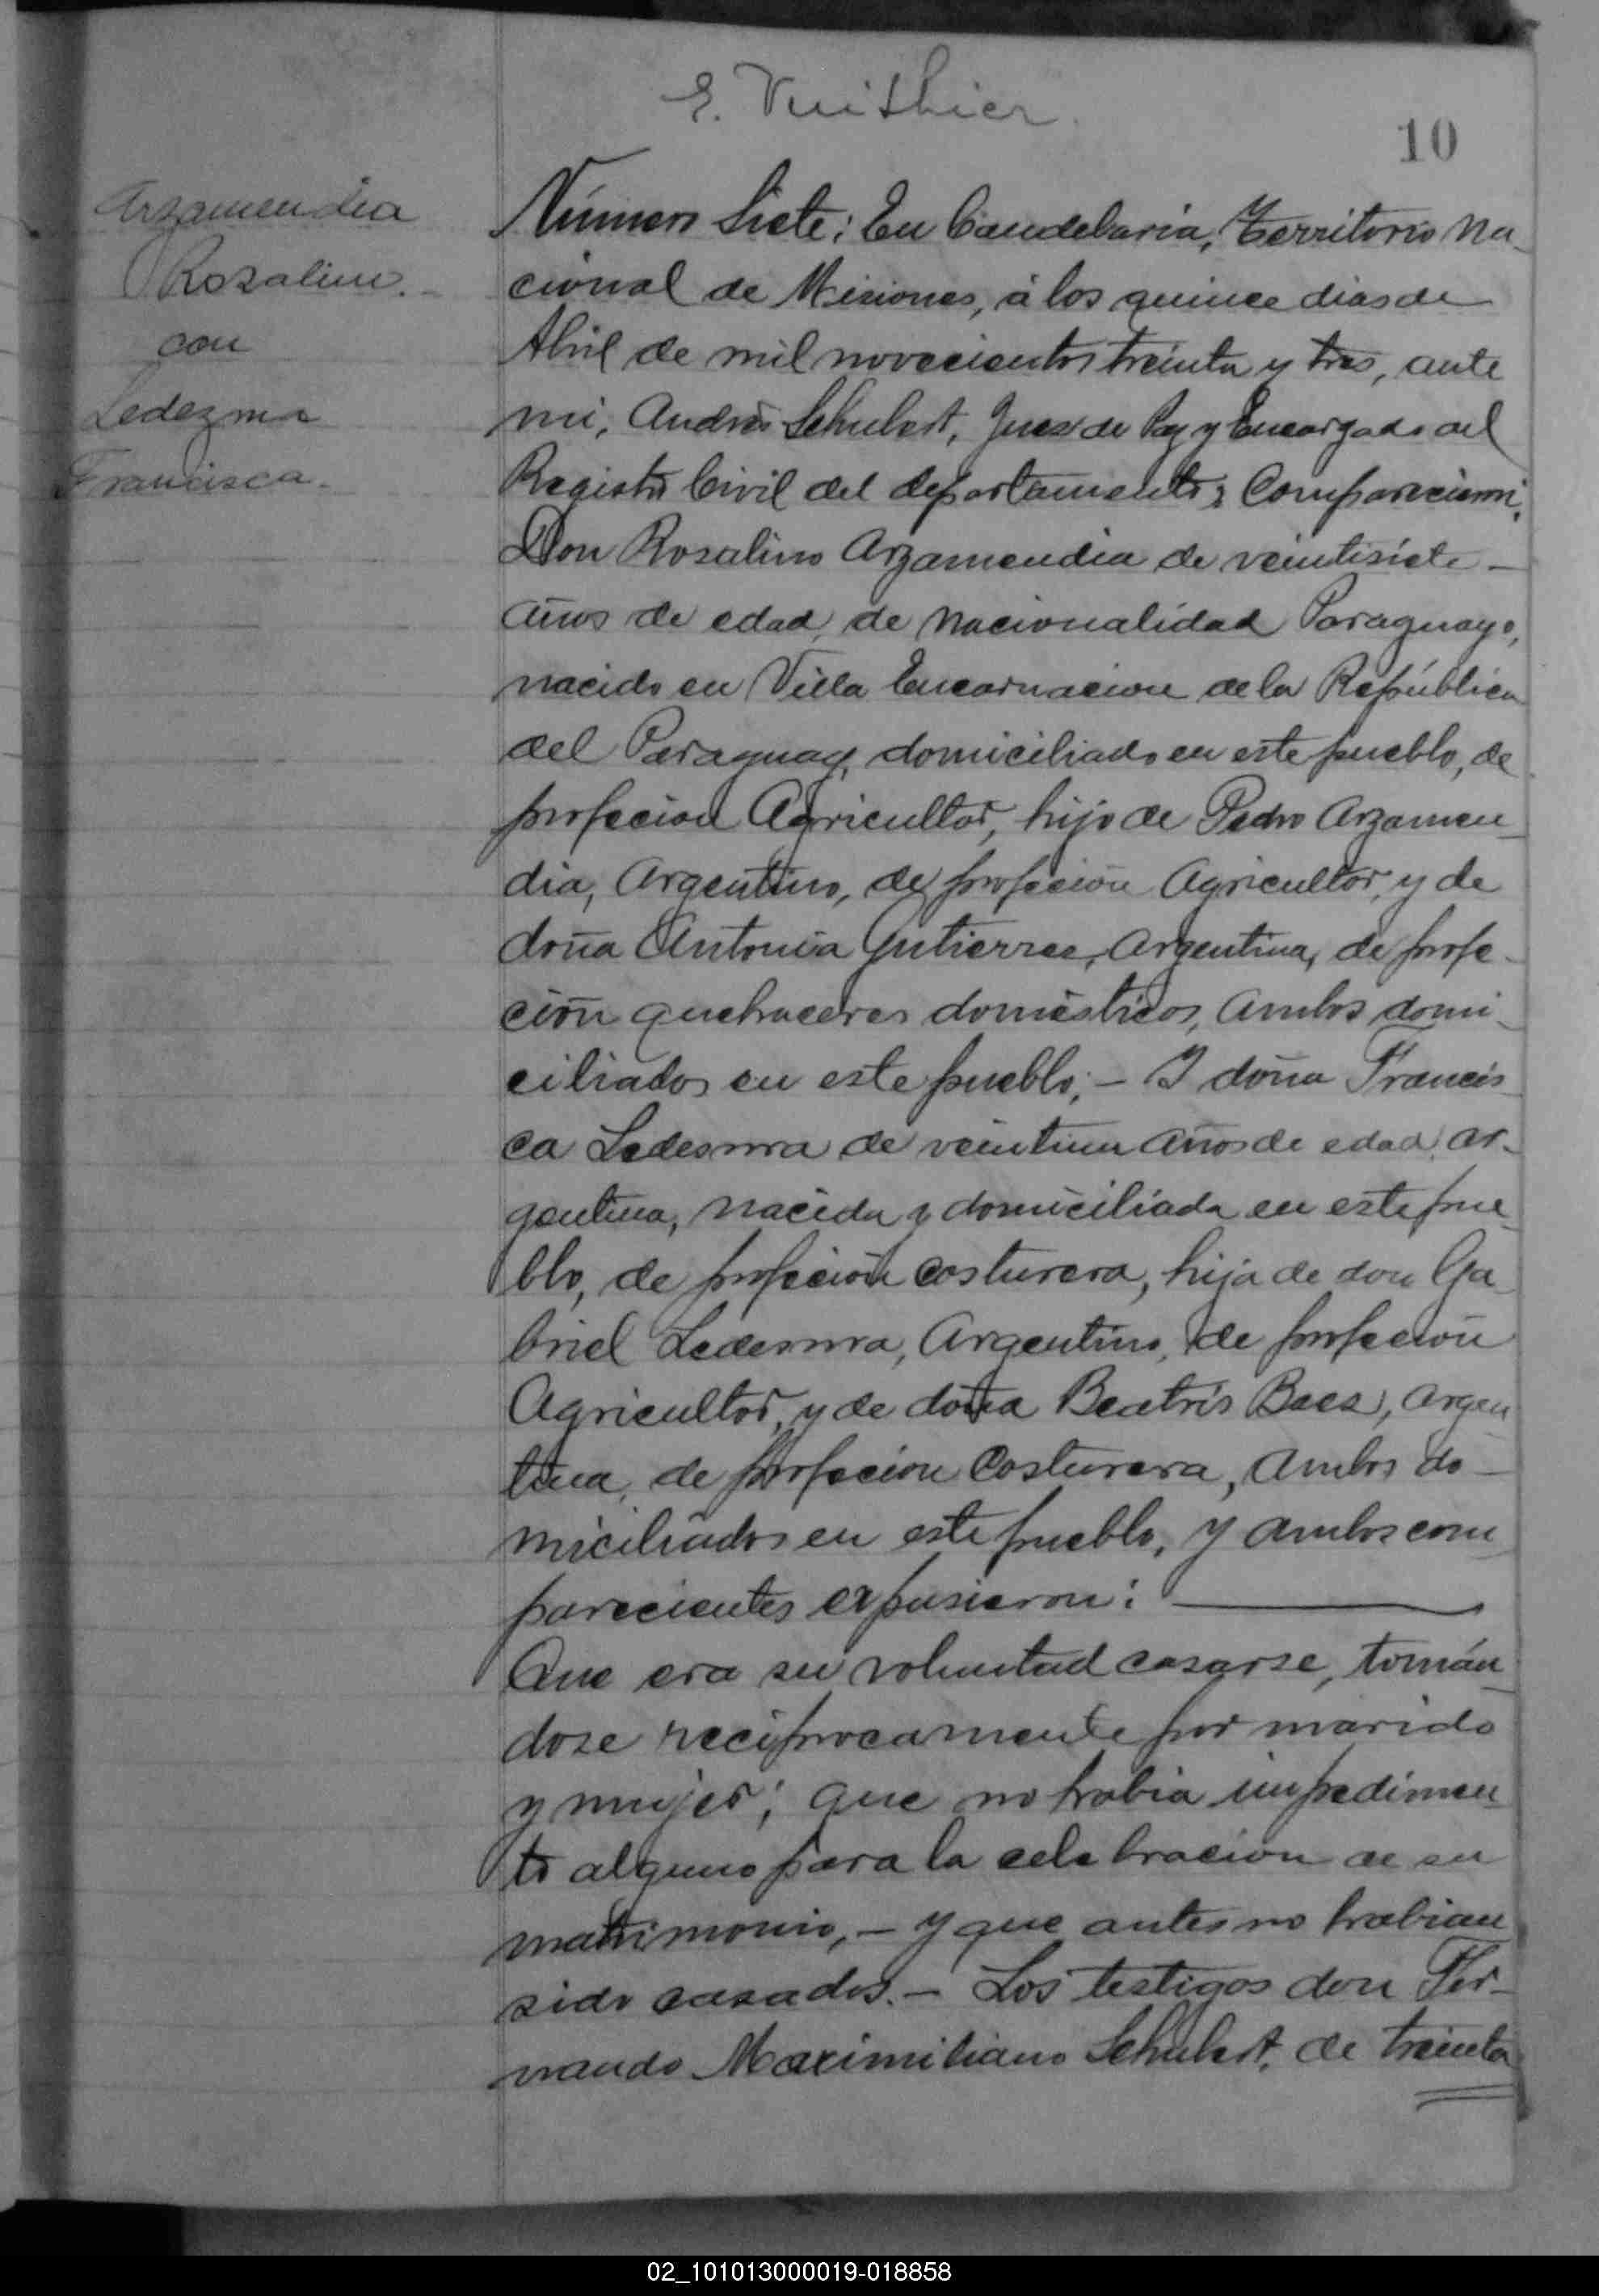 E. Vuithier
10
Arzamendia
Rozalino.-
con
Ledezma
Francisca.
Número Siete: En Candelaria, Territorio Na-
cional de Misiones, á los quince dias de
Abril de mil novecientos treinta y tres, ante
mi, Andrés Schubert, Juez de Paz y Encargado del
Registro Civil del departamento; Comparecieron,
Don Rosalino Arzamendia de veintisiete -
años de edad, de nacionalidad Paraguayo,
nacido en Villa Encarnacion de la República
del Paraguay, domiciliado en este pueblo, de
profecion Agricultor, hijo de Pedro Arzamen-
dia, Argentino, de profeción Agricultor, y de
doña Antonia Gutierrez, Argentina, de profe-
ción quehaceres domésticos, ambos domi-
ciliados en este pueblo; - I doña Francis-
ca Ledesma de veintiun años de edad, ar-
gentina, nacida y domiciliada en este pue-
blo, de profeción costurera, hija de don Ga-
briel Ledesma, Argentino, de profeción
Agricultor, y de doña Beatris Baez, argen-
tina, de profecion Costurera, ambos do-
miciliados en este pueblo, y ambos com-
parecientes expusieron:
Que era su voluntad casarse, tomán-
dose reciprocamente por marido
y mujer; que no habia impedimen-
to alguno para la celebracion de su
matrimonio, - y que antes no habian
sido casados. - Los testigos don Fer-
nando Maximiliano Schubert, de treinta
02_101013000019-018858